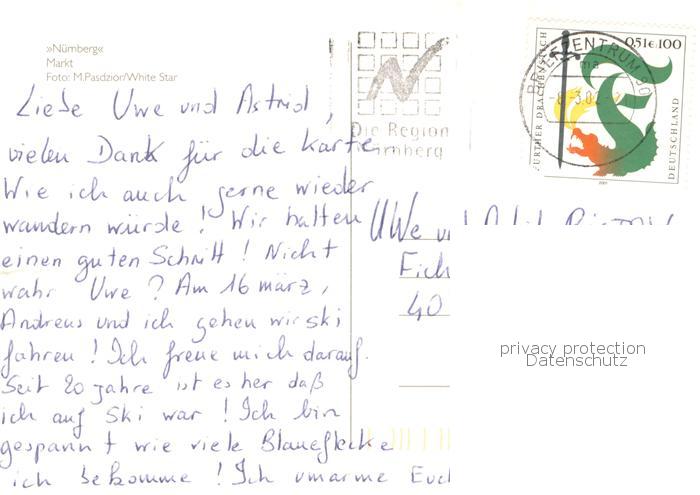 »Nürnberg«
Markt
Foto: M.Pasdzior/White Star
Die Region
Nürnberg
BRIEFZENTRUM 90
-8.-3.02
FURTHER DRACHENSTICH
0,51€ 100
DEUTSCHLAND
2001
Liebe Uwe und Astrid,
vielen Dank für die Karte.
Wie ich auch gerne wieder
wandern würde! Wir hatten
einen guten Schritt! Nicht
wahr Uwe? Am 16 märz,
Andreas und ich gehen wir ski
fahren! Ich freue mich darauf.
Seit 20 jahre ist es her daß
ich auf Ski war! Ich bin
gespannt wie viele Blaueflecke
ich bekomme! Ich umarme Euch
Uwe
Eich
40
privacy protection
Datenschutz